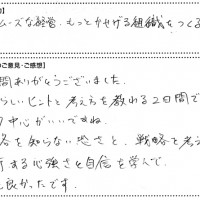 ムーズな経営、もっとかせげる組織をつくる
のご意見・ご感想】
間ありがとうございました。
らしいヒントと考え方を教わる2日間で
り中心がいいですね。
略を知らない恐さと、戦略と考え
する心強さと自信を学んで
良かったです。